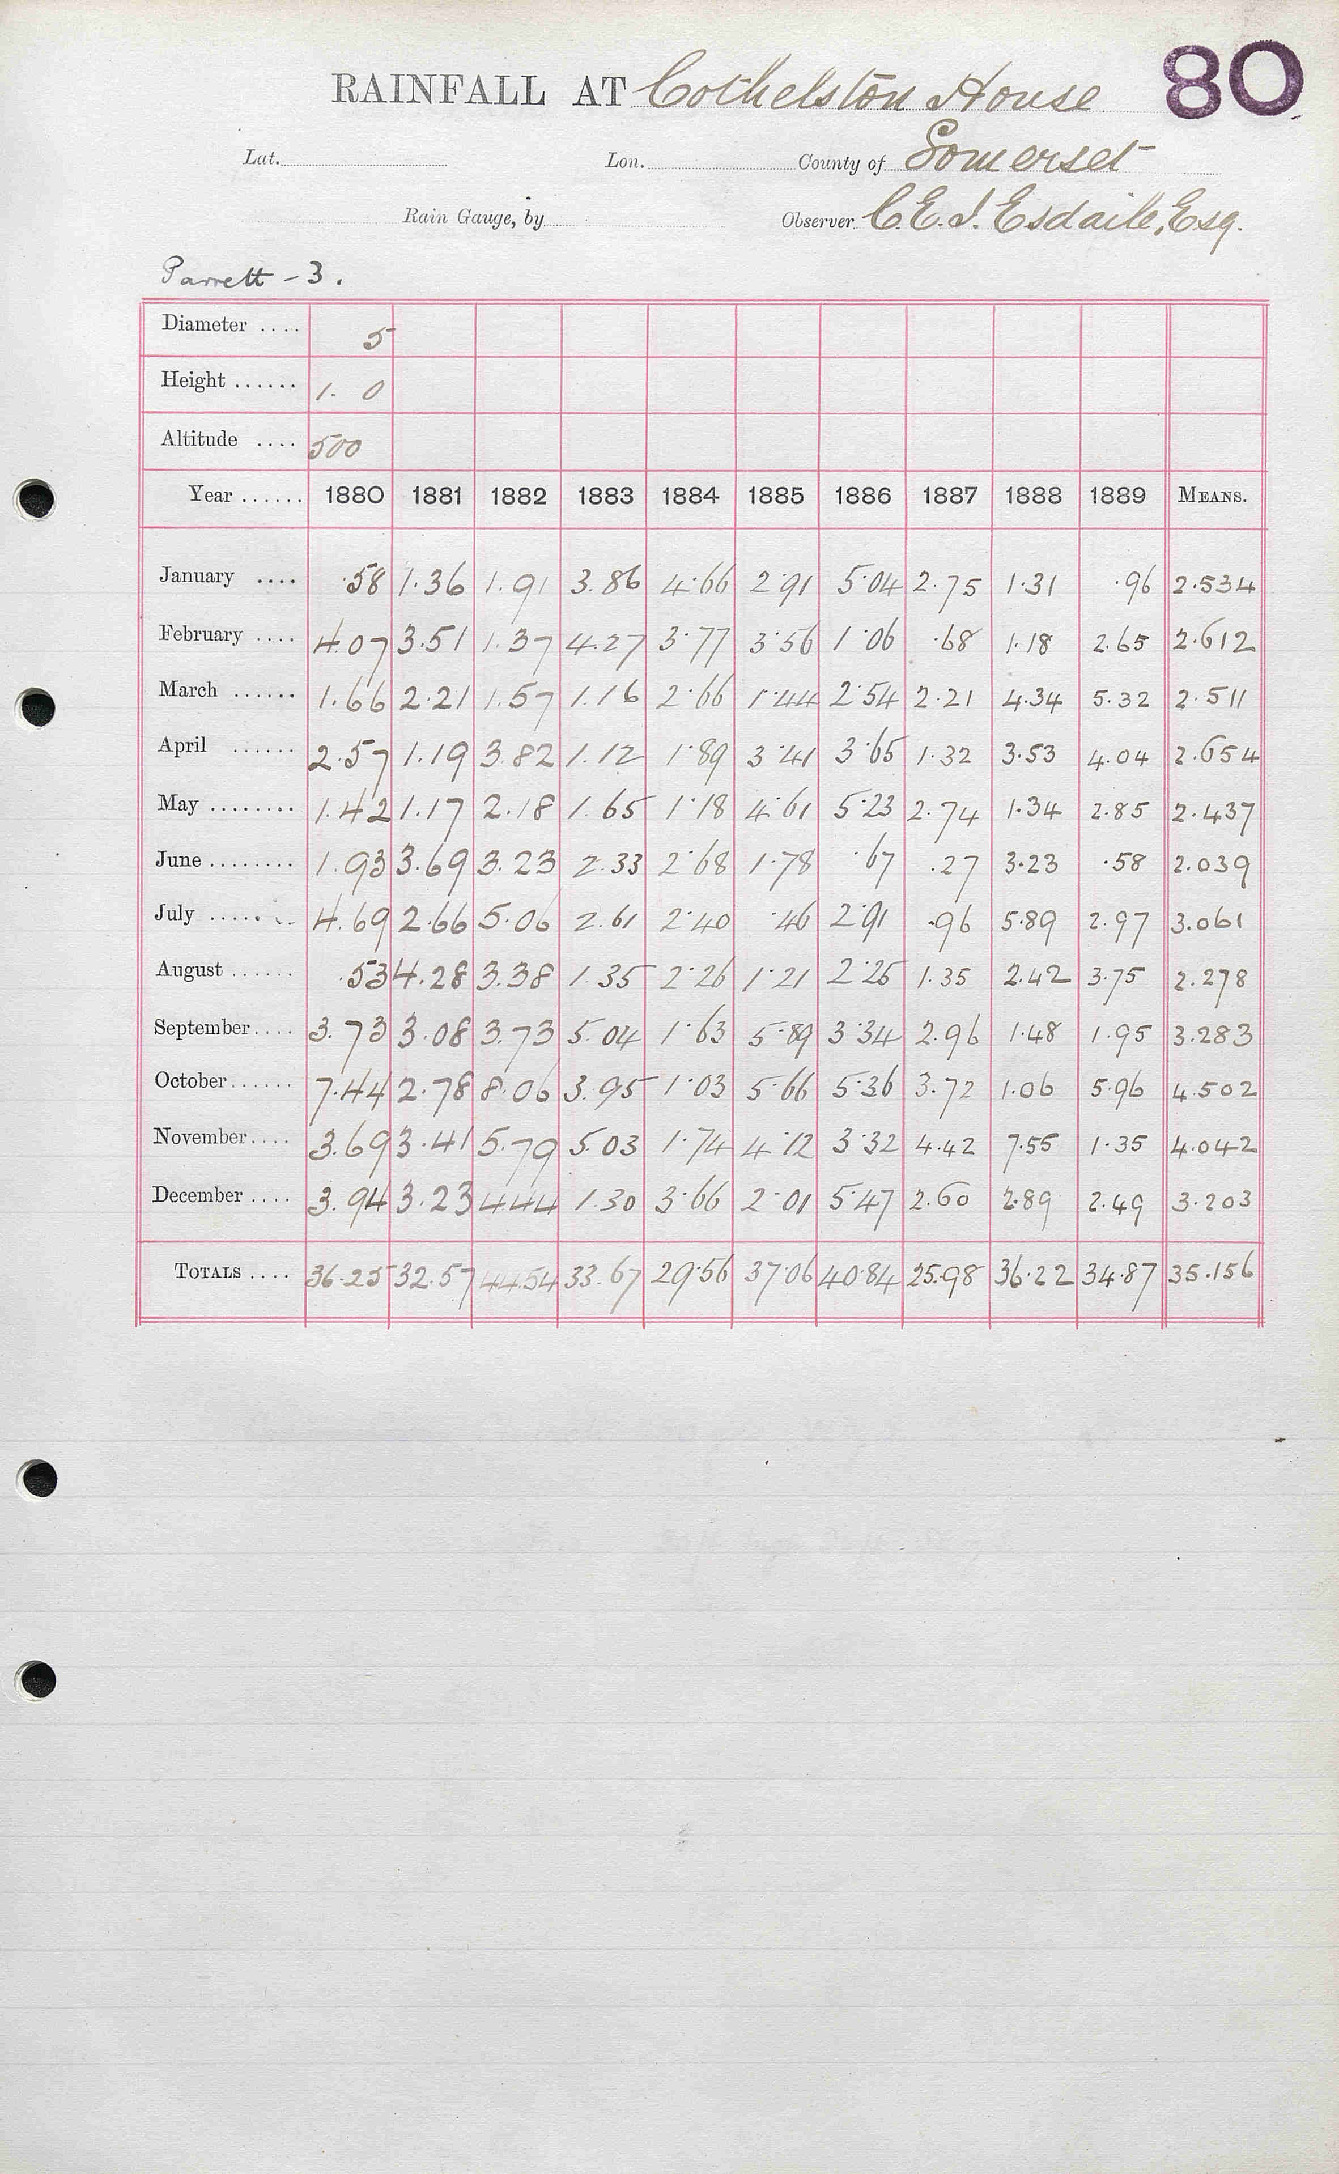 RAINFALL AT Cothelston House 80
Lat. Lon. County of Somerset
Rain Gauge, by Observer. C.E.J. Esdaile, Esq.
Parrett - 3.
Diameter .... 5
Height ...... 1. 0
Altitude .... 500
Year ...... 1880 1881 1882 1883 1884 1885 1886 1887 1888 1889 MEANS.
January .... .58 1.36 1.91 3.86 4.66 2.91 5.04 2.75 1.31 .96 2.534
February .... 4.07 3.51 1.37 4.27 3.77 3.56 1.06 .68 1.18 2.65 2.612
March ...... 1.66 2.21 1.57 1.16 2.66 1.44 2.54 2.21 4.34 5.32 2.511
April ...... 2.57 1.19 3.82 1.12 1.89 3.41 3.65 1.32 3.53 4.04 2.654
May ........ 1.42 1.17 2.18 1.65 1.18 4.61 5.23 2.74 1.34 2.85 2.437
June ........ 1.93 3.69 3.23 2.33 2.68 1.78 .67 .27 3.23 .58 2.039
July ........ 4.69 2.66 5.06 2.61 2.40 .46 2.91 .96 5.89 2.97 3.061
August ...... .53 4.28 3.38 1.35 2.26 1.21 2.25 1.35 2.42 3.75 2.278
September.... 3.73 3.08 3.73 5.04 1.63 5.89 3.34 2.96 1.48 1.95 3.283
October...... 7.44 2.78 8.06 3.95 1.03 5.66 5.36 3.72 1.06 5.96 4.502
November.... 3.69 3.41 5.79 5.03 1.74 4.12 3.32 4.42 7.55 1.35 4.042
December .... 3.94 3.23 4.44 1.30 3.66 2.01 5.47 2.60 2.89 2.49 3.203
TOTALS .... 36.25 32.57 44.54 33.67 29.56 37.06 40.84 25.98 36.22 34.87 35.156